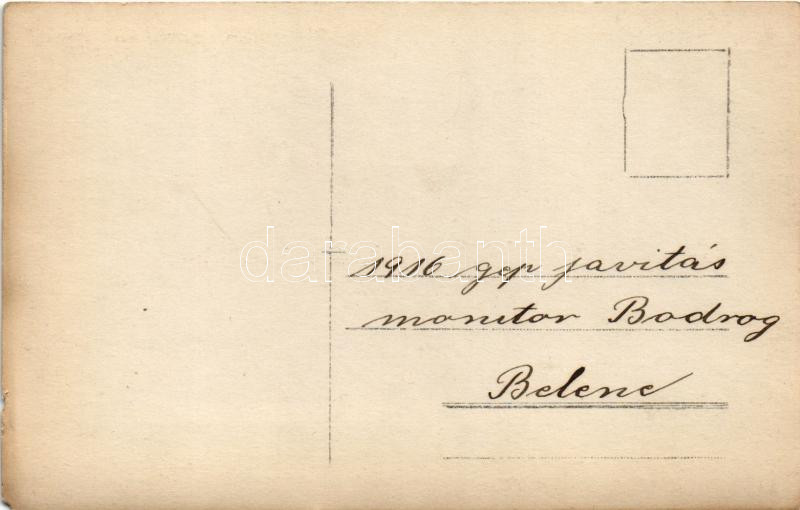 1916 gep javitás
monitor Bodrog
Belene
darabanth